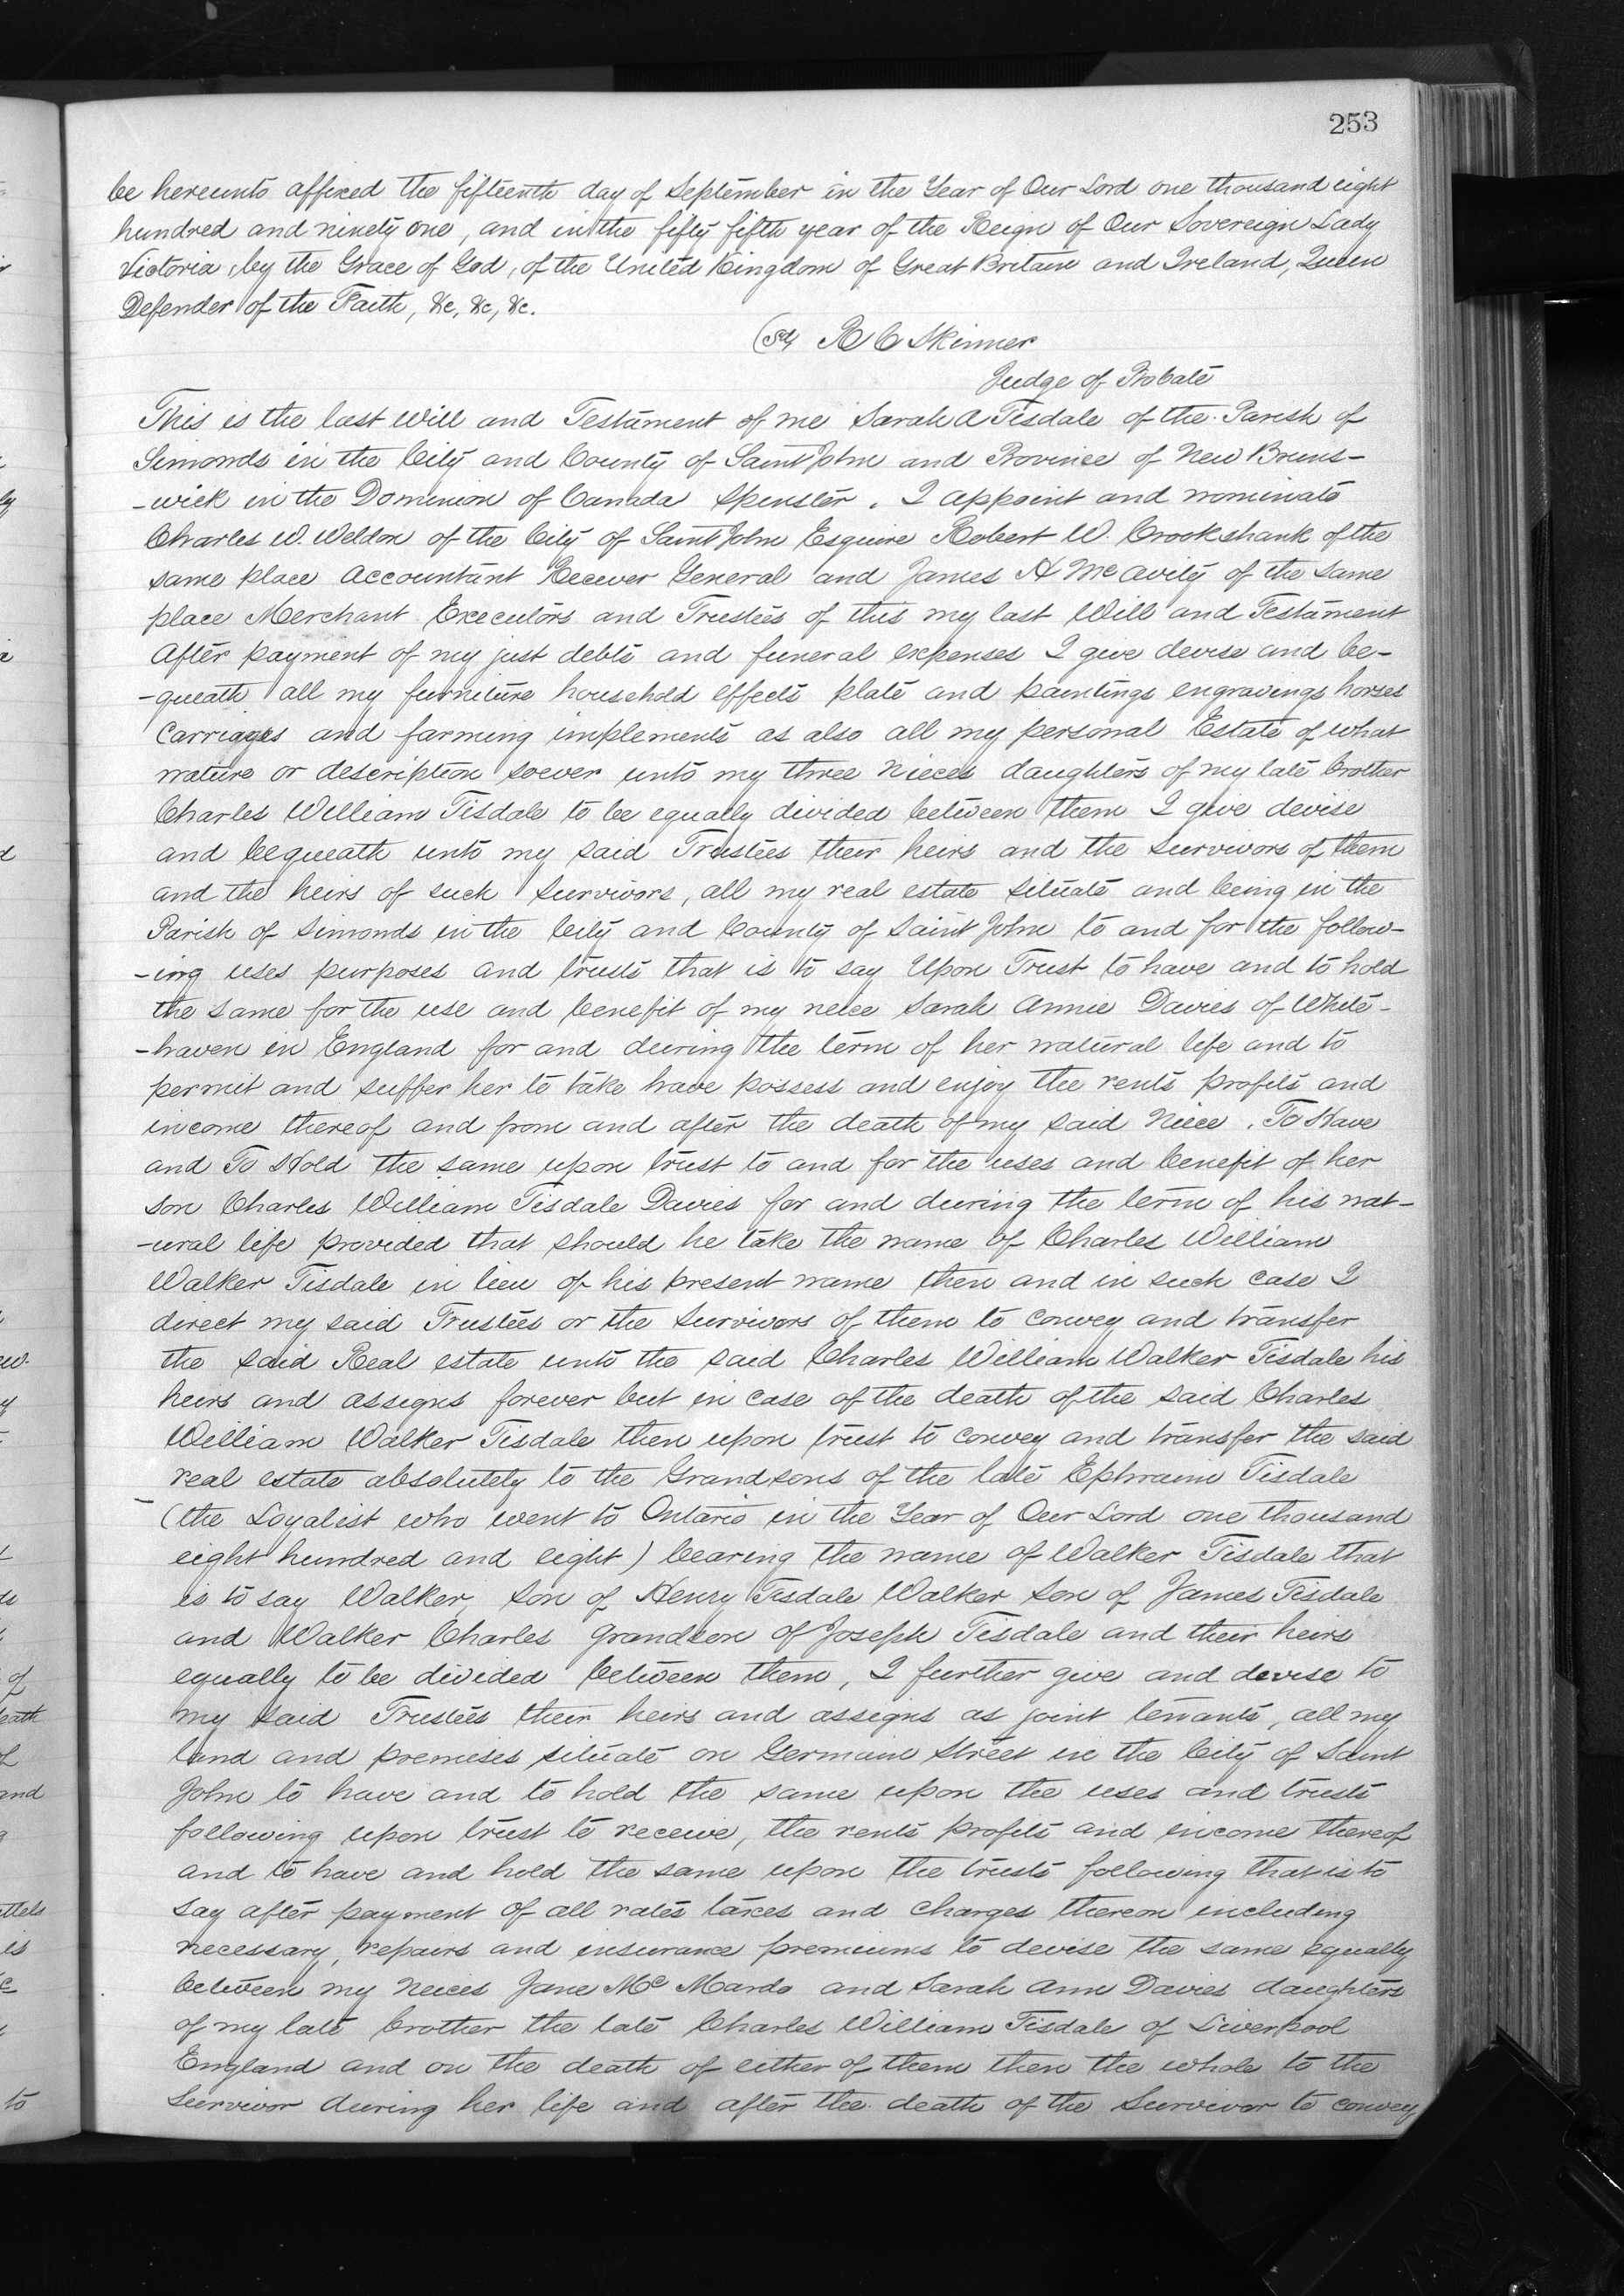 253
be hereunto affixed the fifteenth day of September in the Year of Our Lord one thousand eight
hundred and ninety one, and in the fifty fifth year of the Reign of Our Sovereign Lady
Victoria, by the Grace of God, of the United Kingdom of Great Britain and Ireland, Queen
Defender of the Faith, &c, &c, &c.
(Sd) R C Skinner
Judge of Probate
This is the last Will and Testament of me Sarah A Tisdale of the Parish of
Simonds in the City and County of Saint John and Province of New Bruns-
-wick in the Dominion of Canada Spinster. I appoint and nominate
Charles W. Weldon of the City of Saint John Esquire Robert W. Crookshank of the
same place Accountant Receiver General and James H McAvity of the same
place Merchant Executors and Trustees of this my last Will and Testament
After payment of my just debts and funeral expenses I give devise and be-
-queath all my furniture household effects plate and paintings engravings horses
carriages and farming implements as also all my personal Estate of what
nature or description soever unto my three Nieces daughters of my late brother
Charles William Tisdale to be equally divided between them I give devise
and bequeath unto my said Trustees their heirs and the survivors of them
and the heirs of such survivors, all my real estate situate and being in the
Parish of Simonds in the City and County of Saint John to and for the follow-
-ing uses purposes and trusts that is to say Upon Trust to have and to hold
the same for the use and benefit of my neice Sarah Annie Davies of White-
-haven in England for and during the term of her natural life and to
permit and suffer her to take have possess and enjoy the rents profits and
income thereof and from and after the death of my said Niece. To Have
and To Hold the same upon trust to and for the uses and benefit of her
son Charles William Tisdale Davies for and during the term of his nat-
-ural life provided that should he take the name of Charles William
Walker Tisdale in lieu of his present name then and in such case I
direct my said Trustees or the Survivors of them to convey and transfer
the said Real estate unto the said Charles William Walker Tisdale his
heirs and assigns forever but in case of the death of the said Charles
William Walker Tisdale then upon trust to convey and transfer the said
real estate absolutely to the Grandsons of the late Ephraim Tisdale
(the Loyalist who went to Ontario in the Year of Our Lord one thousand
eight hundred and eight) bearing the name of Walker Tisdale that
is to say Walker, son of Henry Tisdale Walker son of James Tisdale
and Walker Charles grandson of Joseph Tisdale and their heirs
equally to be divided between them, I further give and devise to
my said Trustees their heirs and assigns as joint tenants, all my
land and premises situate on Germain Street in the City of Saint
John to have and to hold the same upon the uses and trusts
following upon trust to receive, the rents profits and income thereof
and to have and hold the same upon the trusts following that is to
say after payment of all rates taxes and charges thereon including
necessary, repairs and insurance premiums to devise the same equally
between my Neices Jane Mc Mardo and Sarah Ann Davies daughters
of my late brother the late Charles William Tisdale of Liverpool
England and on the death of either of them then the whole to the
Survivor during her life and after the death of the Survivor to convey